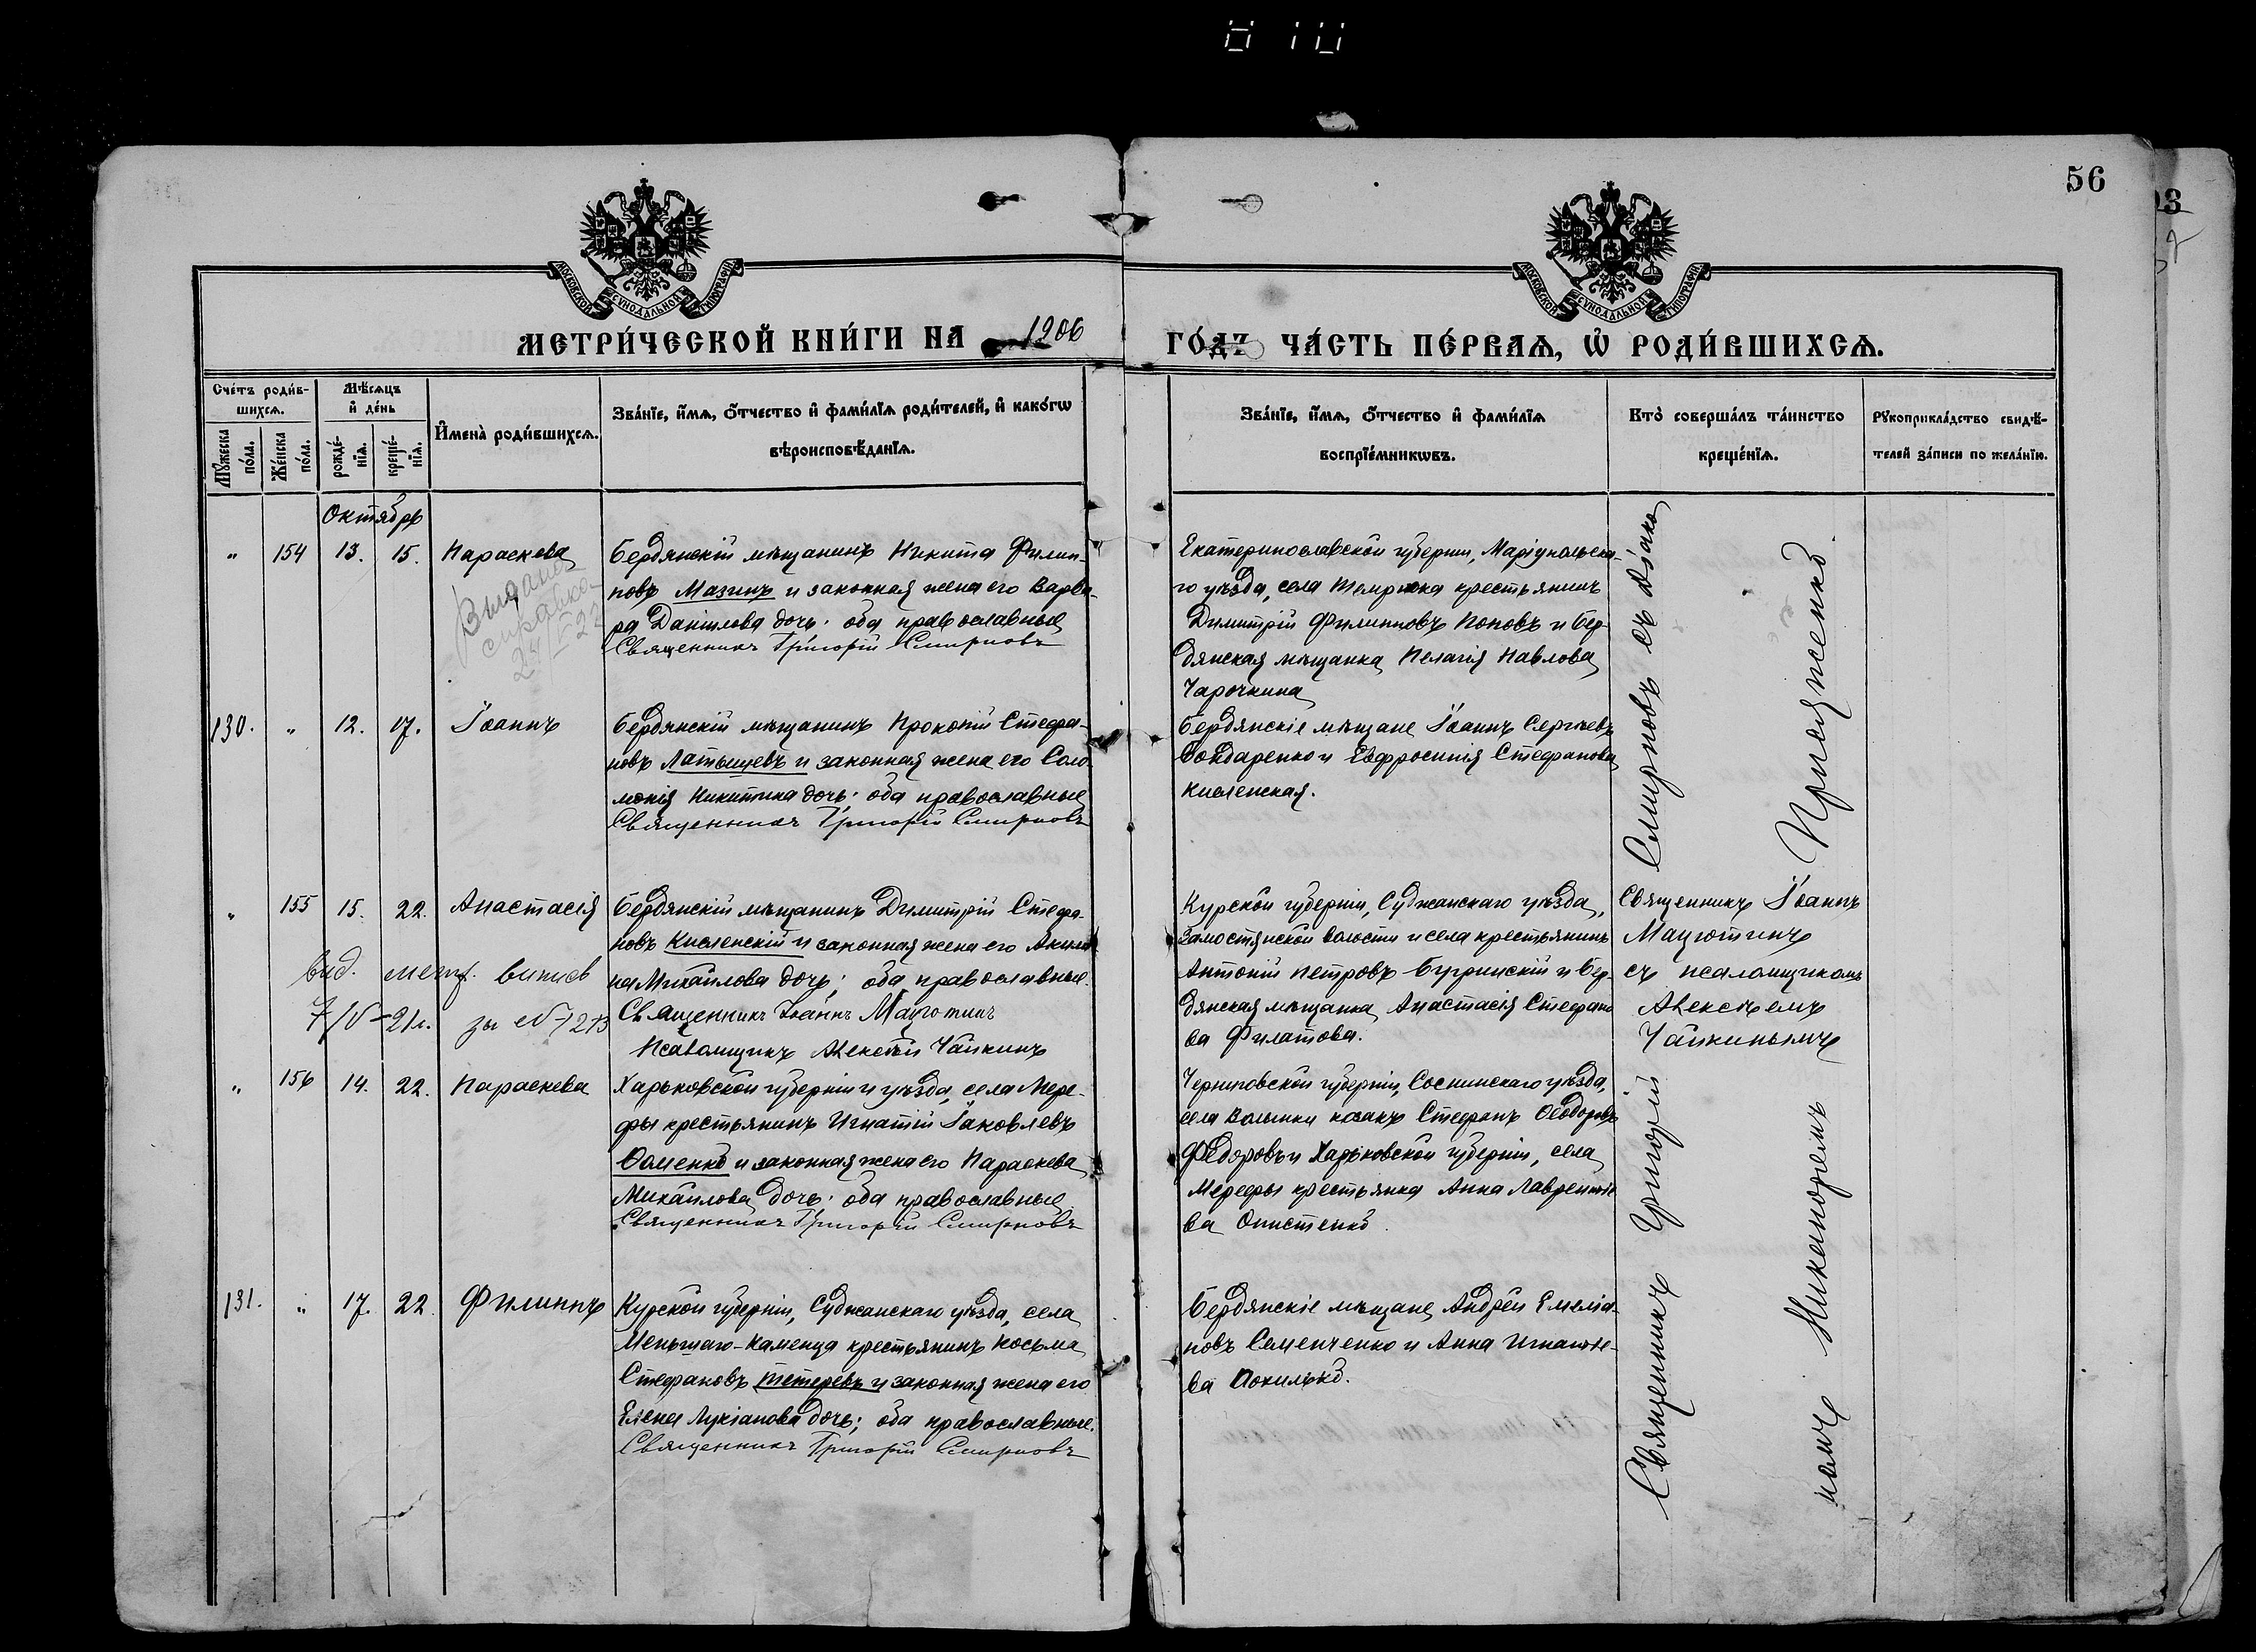 56
МОСКОВСКОЙ СѴНОДАЛЬНОЙ ТИПОГРАФІИ
МОСКОВСКОЙ СѴНОДАЛЬНОЙ ТИПОГРАФІИ
МЕТРИ́ЧЕСКОЙ КНИ́ГИ НА 1906
ГО́ДЪ ЧА́СТЬ ПЕ́РВАѦ, Ѡ҆ РОДИ́ВШИХСѦ.
Сче́тъ роди́в-
шихсѧ.
Мꙋ́жеска
по́ла.
Же́нска
по́ла.
Мѣ́сѧцъ
и҆ де́нь
рожде́-
нїѧ.
креще́-
нїѧ.
И҆мена̀ роди́вшихсѧ.
Зва́нїе, и҆́мѧ, ѻ҆́тчество и҆ фами́лїѧ роди́телей, и҆ како́гѡ
вѣроисповѣ́данїѧ.
Зва́нїе, и҆́мѧ, ѻ҆́тчество и҆ фами́лїѧ
воспрїе́мникѡвъ.
Кто̀ соверша́лъ та́инство
креще́нїѧ.
Рꙋкоприкла́дство свидѣ́-
телей за́писи по жела́нїю.
Октябрь
" 154 13. 15. Параскева
Выдана
справка
24/V 22
Бердянскій мѣщанинъ Никита Филип-
повъ Мазинъ и законная жена его Варва-
ра Даніилова дочь; оба православные
Священникъ Григорій Смирновъ
Екатеринославской губерніи, Маріупольска-
го уѣзда, села Темрюка крестьянинъ
Димитрій Филипповъ Поповъ и Бер-
дянская мѣщанка Пелагія Павлова
Чарочкина
130. " 12. 17. Іоаннъ
Бердянскій мѣщанинъ Прокопій Стефа-
новъ Латышевъ и законная жена его Соло-
монія Никитина дочь; оба православные
Священникъ Григорій Смирновъ
Бердянскіе мѣщане Іоаннъ Сергѣевъ
Бондаренко и Евфросинія Стефанова
Кисленская.
" 155 15. 22. Анастасія
вид. метр. випись
7/V-21г. за № 1213
Бердянскій мѣщанинъ Димитрій Стефа-
новъ Кисленскій и законная жена его Акили-
на Михаилова дочь; оба православные.
Священникъ Іоаннъ Мацютинъ
Псаломщикъ Алексѣй Чайкинъ
Курской губерніи, Суджанскаго уѣзда,
Замостянской волости и села крестьянинъ
Антоній Петровъ Бугринскій и Бер-
дянская мѣщанка Анастасія Стефано-
ва Филатова.
Священникъ Іоаннъ
Мацютинъ
съ псаломщикомъ
Алексѣемъ
Чайкинымъ
" 156 14. 22. Параскева
Харьковской губерніи и уѣзда, села Мере-
фы крестьянинъ Игнатій Іаковлевъ
Фоменко и законная жена его Параскева
Михаилова дочь; оба православные
Священникъ Григорій Смирновъ
Черниговской губерніи, Сосницкаго уѣзда,
села Волынки козакъ Стефанъ Ѳеодоровъ
Федоровъ и Харьковской губерніи, села
Мерефы крестьянка Анна Лаврентіе-
ва Онистенко.
131. " 17. 22. Филиппъ
Курской губерніи, Суджанскаго уѣзда, села
Меньшаго-Каменца крестьянинъ Косьма
Стефановъ Тетеревъ и законная жена его
Елена Лукіанова дочь; оба православные.
Священникъ Григорій Смирновъ
Бердянскіе мѣщане Андрей Емеліа-
новъ Семенченко и Анна Игнатіе-
ва Покилько.
Священникъ Григорій Смирновъ съ діако-
номъ Никаноромъ Присяженко